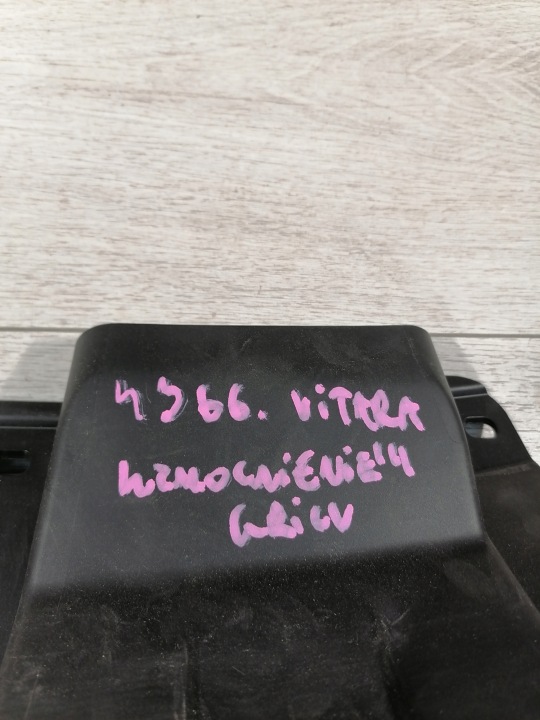 4966. ViTARA
WZMOCNiENiE
GRiLU